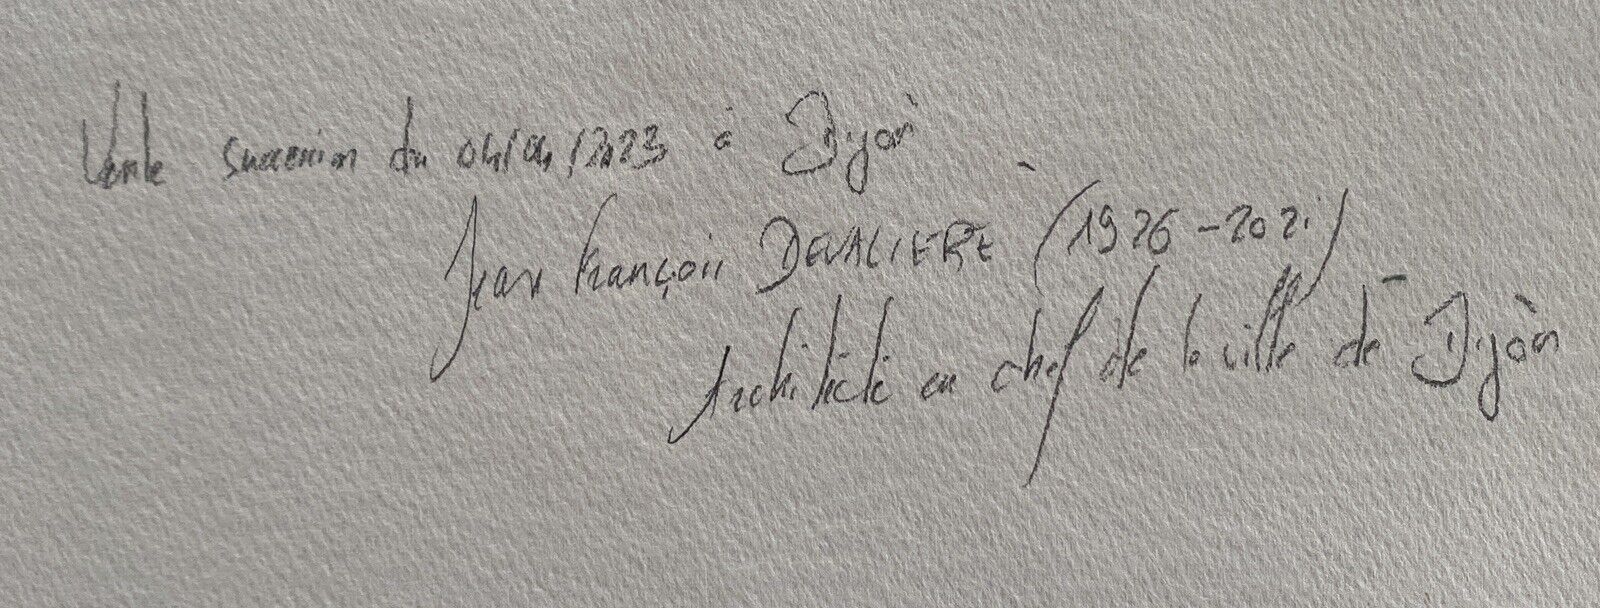 Vente succession du 04/04/2023 à Dijon
Jean François DEVALIERE (1926-2021)
Architecte en chef de la ville de Dijon